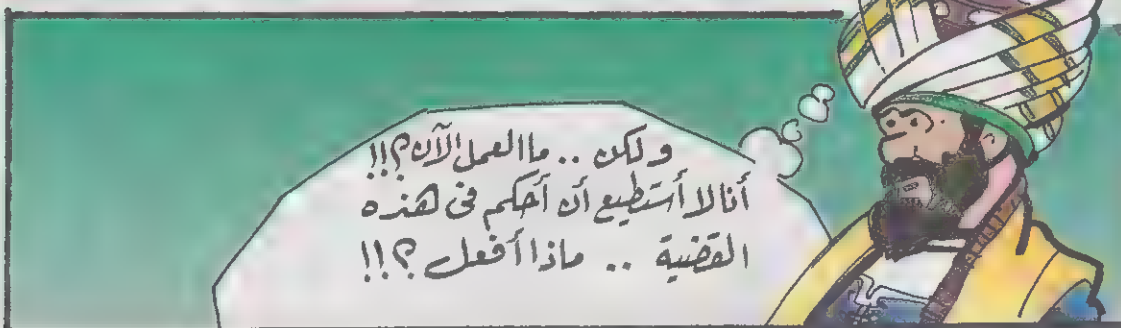 ولكن .. ما العمل الآن ؟!!
أنا لا أستطيع أن أحكم فى هذه
القضية .. ماذا أفعل ؟!!